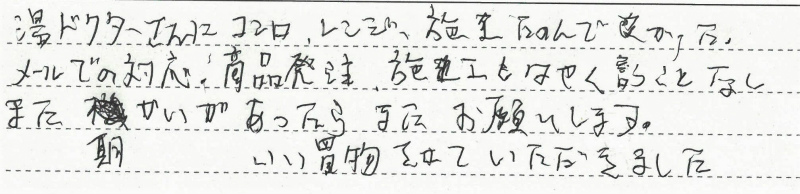 湯ドクターさんにコンロ、レンジ、施工たのんで良かった。
メールでの対応、商品発注、施工もはやく言うことなし
また機かいがあったらまたお願いします。
期 いい買物をさせていただきました